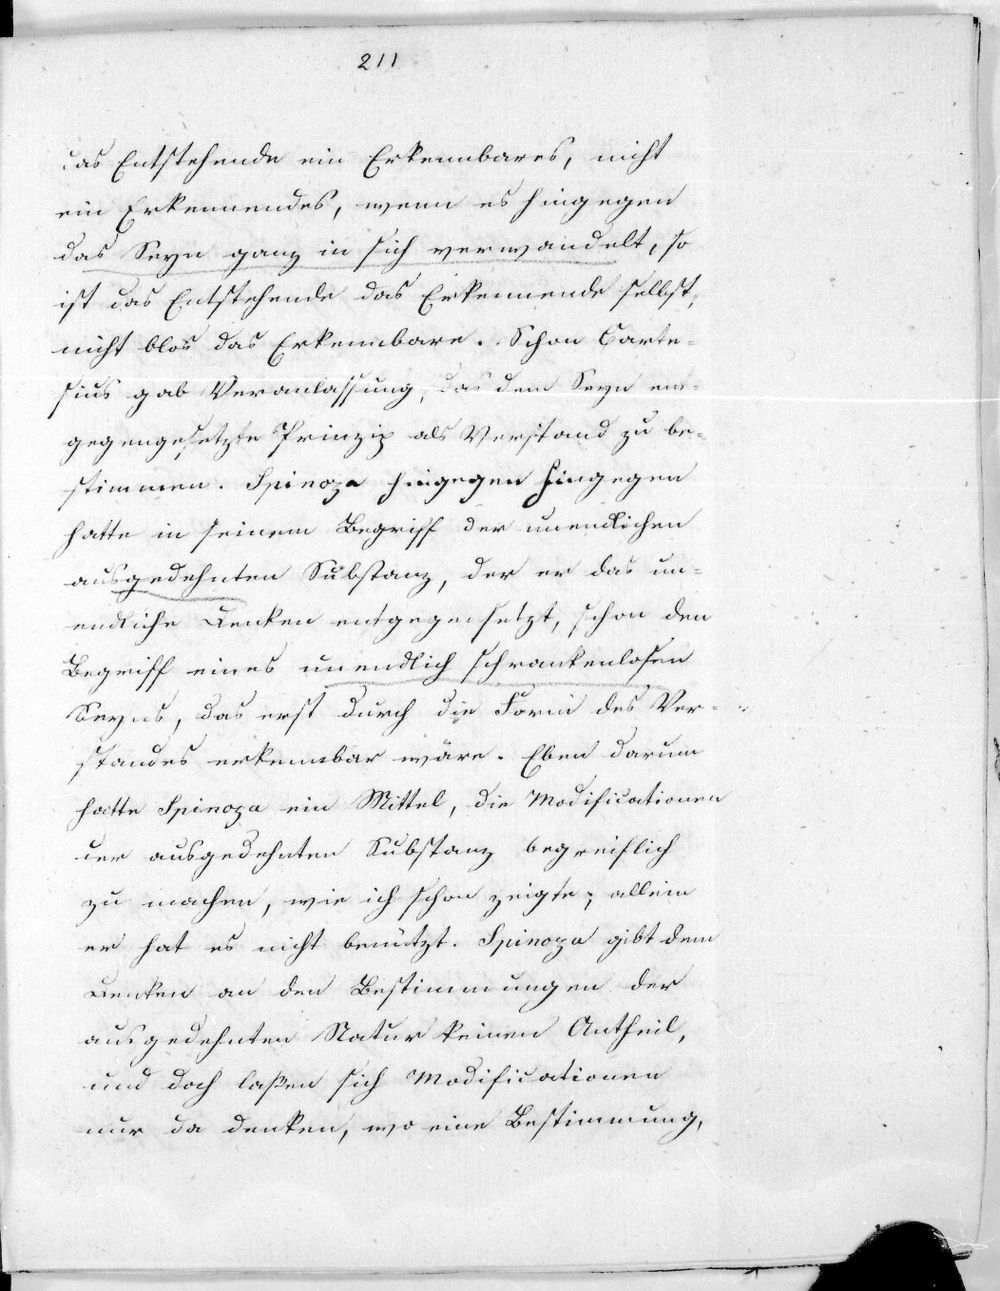 211
das Entstehende ein Erkennbares, nicht
ein Erkennendes, wenn es hingegen
das Seyn ganz in sich verwandelt, so
ist das Entstehende das Erkennende selbst,
nicht blos das Erkennbare. Schon Carte=
sius gab Veranlassung, das dem Seyn ent=
gegengesetzte Prinzip als Verstand zu be=
stimmen. Spinoza hingegen hingegen
hatte in seinem Begriff der unendlichen
ausgedehnten Substanz, der er das un=
endliche Denken entgegensetzt, schon den
Begriff eines unendlich schrankenlosen
Seyns, das erst durch die Form des Ver=
standes erkennbar wäre. Eben darum
hatte Spinoza ein Mittel, die Modificationen
der ausgedehnten Substanz begreiflich
zu machen, wie ich schon zeigte; allein
er hat es nicht benützt. Spinoza gibt dem
Denken an den Bestimmungen der
ausgedehnten Natur keinen Antheil,
und doch laßen sich Modificationen
nur da denken, wo eine Bestimmung,